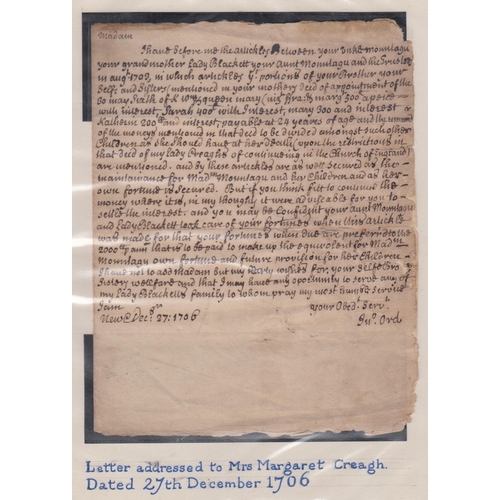 Madam
I have before me the articles Between your Unkle Monntagu
your grandmother Lady Blackett your aunt Monntagu and the Trustee
in augt 1703, in which articles ye portions of your Brother your
selfe and Sisters mentioned in your mothers deed of appointment of the
with interest, Sarah 400ll with Interest, mary 300 and interest
Katherin 200 and interest, payable at 24 years of age and the remaind
of the moneys mentioned in that deed to be divided amongst such other
Children as she should have at her death upon the restrictions in
that deed of my Lady Creaghs of continueing in the Church of England
are mentioned and by these articles are as well secured as the
maintainance for Madm Monntagu and her Children and as her
own fortune is secured. But if you think fitt to continue the
money where it is, in my thought it were adviseable for you to
settle the interest: and you may be Confident your aunt Monntagu
and Lady Blackett took care of your fortunes when this article
was made for that your fortunes when due are preferred to the
2000ll p ann that is to be paid to make up the equivalent for Madm
Monntagu own fortune and future provision for her Children
I have not to add Madam but my hearty wishes for your selfe Bro
Sister wellfare and that I may have any opertunity to serve any of
my Lady Blacketts family to whom pray my most humble service
I am your Obedt Servt
New C Decbr 27: 1706 Jno. Ord
Letter addressed to Mrs Margaret Creagh.
Dated 27th December 1706